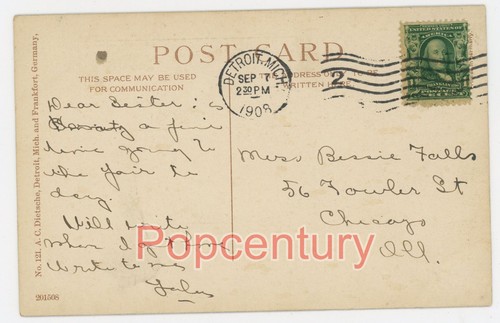 POST CARD
THIS SPACE MAY BE USED
FOR COMMUNICATION
ADDRESS
WRITTEN HERE
DETROIT, MICH.
SEP 7
230 PM
1908
2
No. 121. A. C. Dietsche, Detroit, Mich. and Frankfort, Germany.
Dear Sister: is
a fine
time going to
the fair to
day.
Will write
when I get home
Write to me
Miss Bessie Falls
56 Fowler St
Chicago
Ill.
Popcentury
201508